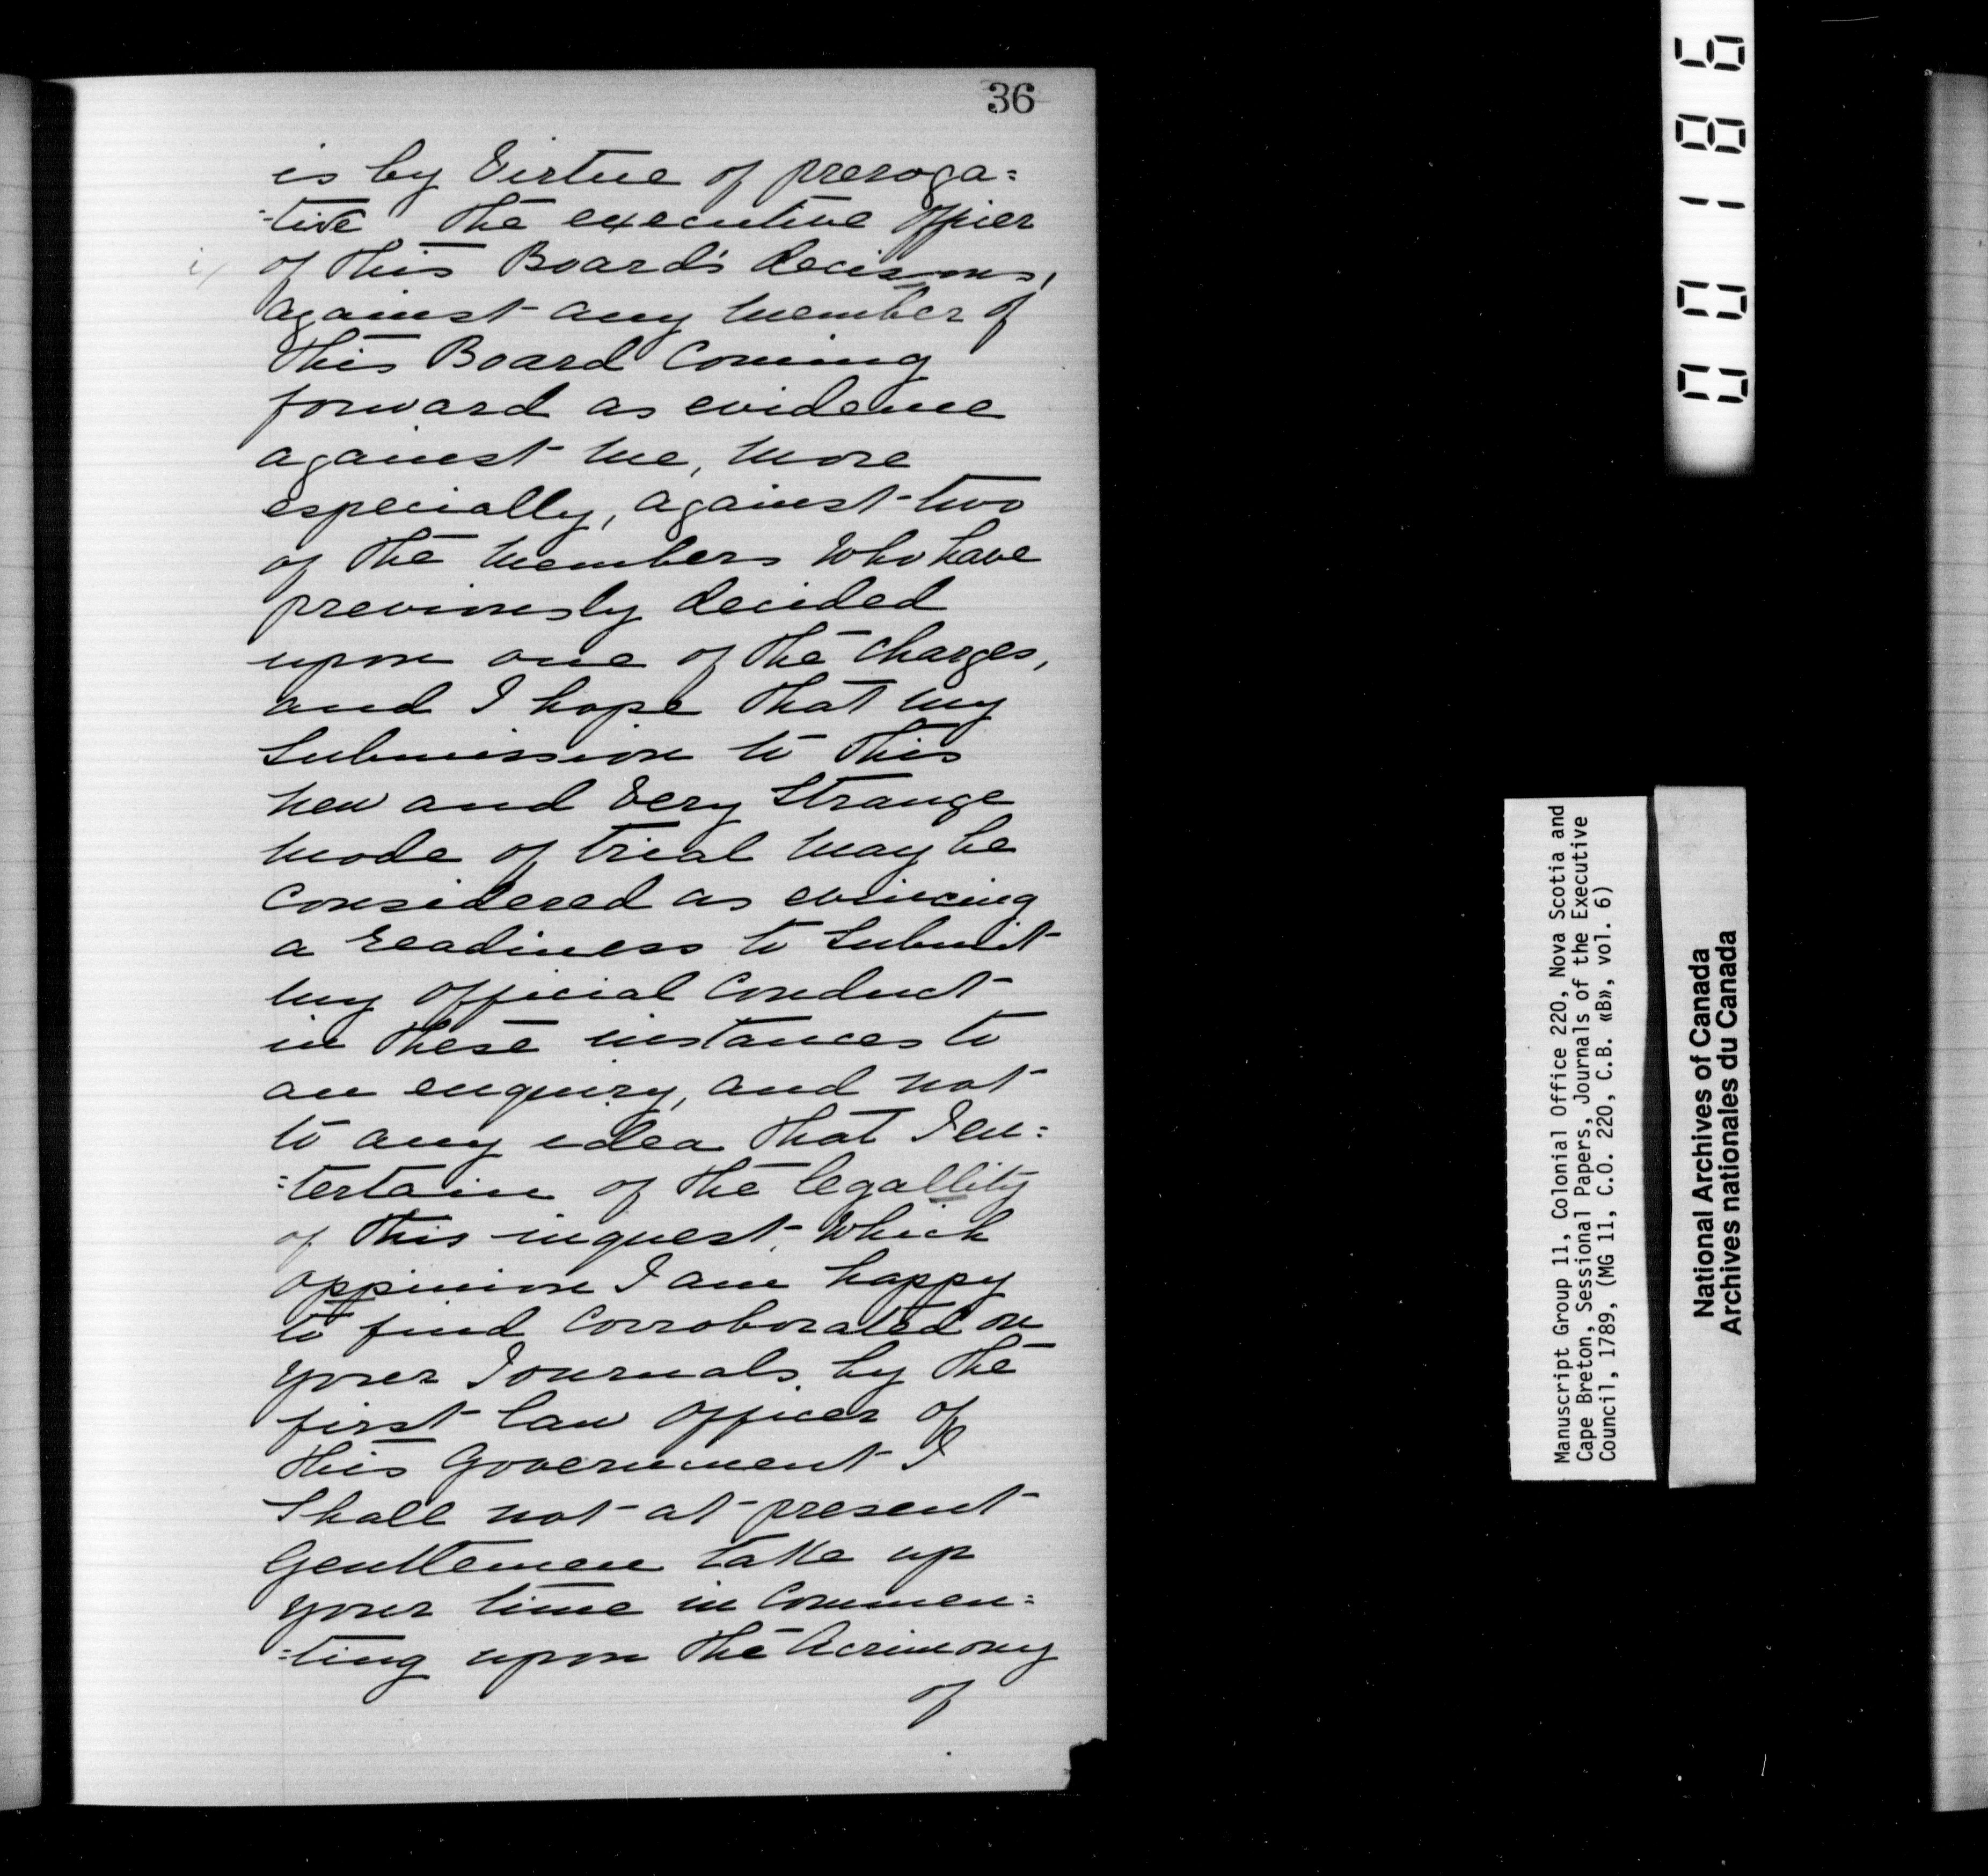 36
is by Virtue of preroga=
=tive the executive Offier
i/ of this Board's decisons,
against any member of
this Board Coming
forward as evidence
against me, more
especially, against two
of the members who have
previously decided
upon one of the charges,
and I hope that my
Submission to this
new and very Strange
mode of trial may be
Considered as evincing
a readiness to Submit
my Official Conduct
in these instances to
an enquiry, and not
to any idea that I en=
=tertain of the legallity
of this inquest, which
oppinion I am happy
to find Corroborated on
your Journals, by the
first law Officer of
this Government I
Shall not at present
Gentlemen take up
your time in Commen=
=ting upon the Acrimony
of
001186
Manuscript Group 11, Colonial Office 220, Nova Scotia and
Cape Breton, Sessional Papers, Journals of the Executive
Council, 1789, (MG 11, C.O. 220, C.B. «B», vol. 6)
National Archives of Canada
Archives nationales du Canada